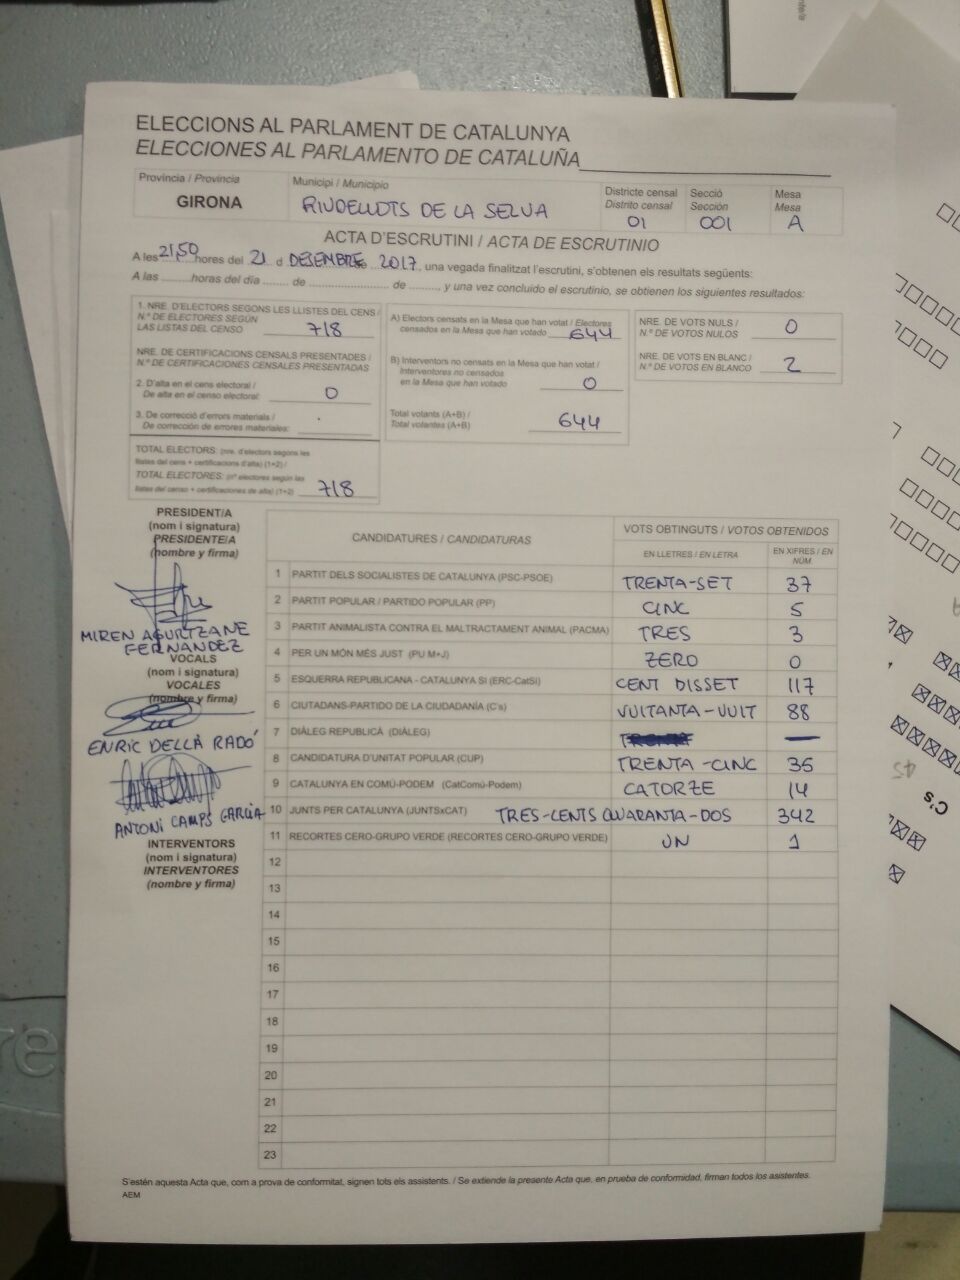 ELECCIONS AL PARLAMENT DE CATALUNYA
ELECCIONES AL PARLAMENTO DE CATALUÑA
Provincia / Provincia
GIRONA
Municipi / Municipio
RIUDELLOTS DE LA SELVA
Districte censal
Distrito censal
01
Secció
Sección
001
Mesa
Mesa
A
ACTA D'ESCRUTINI / ACTA DE ESCRUTINIO
A les 21,50 hores del 21 d DESEMBRE de 2017, una vegada finalitzat l'escrutini, s'obtenen els resultats següents:
A las ......... horas del día ........ de ........................ de ........., y una vez concluido el escrutinio, se obtienen los siguientes resultados:
1. NRE. D'ELECTORS SEGONS LES LLISTES DEL CENS /
N.º DE ELECTORES SEGÚN
LAS LISTAS DEL CENSO 718
NRE. DE CERTIFICACIONS CENSALS PRESENTADES /
N.º DE CERTIFICACIONES CENSALES PRESENTADAS
2. D'alta en el cens electoral /
De alta en el censo electoral: 0
3. De correcció d'errors materials /
De corrección de errores materiales:
TOTAL ELECTORS: (nre. d'electors segons les
llistes del cens + certificacions d'alta) (1+2) /
TOTAL ELECTORES: (nº electores según las
listas del censo + certificaciones de alta) (1+2) 718
A) Electors censats en la Mesa que han votat / Electores
censados en la Mesa que han votado 644
B) Interventors no censats en la Mesa que han votat /
Interventores no censados
en la Mesa que han votado 0
Total votants (A+B) /
Total votantes (A+B) 644
NRE. DE VOTS NULS /
N.º DE VOTOS NULOS 0
NRE. DE VOTS EN BLANC /
N.º DE VOTOS EN BLANCO 2
PRESIDENT/A
(nom i signatura)
PRESIDENTE/A
(nombre y firma)
MIREN AGURTZANE
FERNANDEZ
VOCALS
(nom i signatura)
VOCALES
(nombre y firma)
ENRIC DELLÀ RADÓ
ANTONI CAMPS GARCIA
INTERVENTORS
(nom i signatura)
INTERVENTORES
(nombre y firma)
CANDIDATURES / CANDIDATURAS
VOTS OBTINGUTS / VOTOS OBTENIDOS
EN LLETRES / EN LETRA
EN XIFRES / EN NÚM.
1 PARTIT DELS SOCIALISTES DE CATALUNYA (PSC-PSOE) TRENTA-SET 37
2 PARTIT POPULAR / PARTIDO POPULAR (PP) CINC 5
3 PARTIT ANIMALISTA CONTRA EL MALTRACTAMENT ANIMAL (PACMA) TRES 3
4 PER UN MÓN MÉS JUST (PU M+J) ZERO 0
5 ESQUERRA REPUBLICANA - CATALUNYA SI (ERC-CatSí) CENT DISSET 117
6 CIUTADANS-PARTIDO DE LA CIUDADANÍA (C's) VUITANTA-VUIT 88
7 DIÀLEG REPUBLICÀ (DIÀLEG) —
8 CANDIDATURA D'UNITAT POPULAR (CUP) TRENTA-CINC 35
9 CATALUNYA EN COMÚ-PODEM (CatComú-Podem) CATORZE 14
10 JUNTS PER CATALUNYA (JUNTSxCAT) TRES-CENTS QUARANTA-DOS 342
11 RECORTES CERO-GRUPO VERDE (RECORTES CERO-GRUPO VERDE) UN 1
12
13
14
15
16
17
18
19
20
21
22
23
S'estén aquesta Acta que, com a prova de conformitat, signen tots els assistents. / Se extiende la presente Acta que, en prueba de conformidad, firman todos los asistentes.
AEM
45
C's